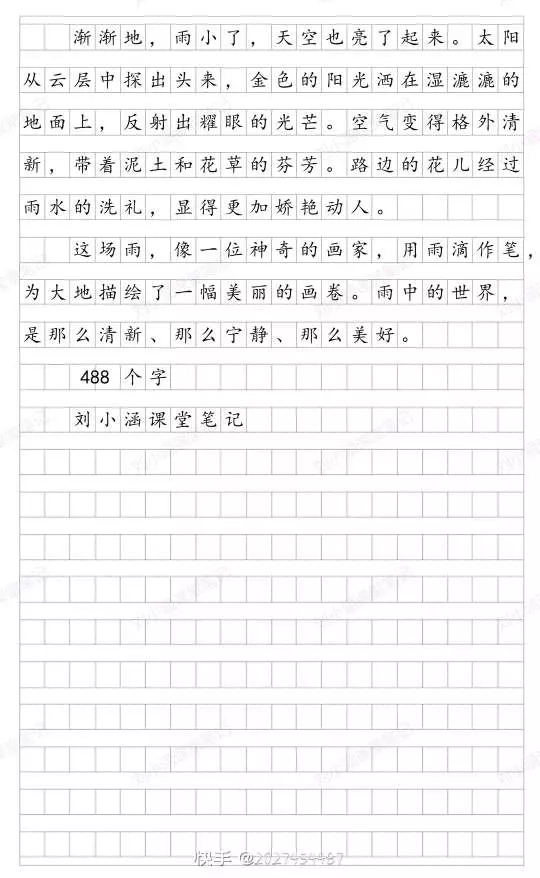 渐渐地，雨小了，天空也亮了起来。太阳
从云层中探出头来，金色的阳光洒在湿漉漉的
地面上，反射出耀眼的光芒。空气变得格外清
新，带着泥土和花草的芬芳。路边的花儿经过
雨水的洗礼，显得更加娇艳动人。
这场雨，像一位神奇的画家，用雨滴作笔，
为大地描绘了一幅美丽的画卷。雨中的世界，
是那么清新、那么宁静、那么美好。
488 个字
刘小涵课堂笔记
快手 @2027454487